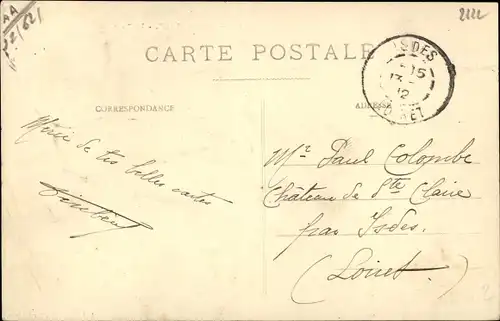 AA
2222
CARTE POSTALE
ISDES
15
13
12
LOIRET
CORRESPONDANCE
ADRESSE
Merci de tes belles cartes
Mr. Paul Colombe
Château de Ste Claire
par Isdes.
(Loiret.)